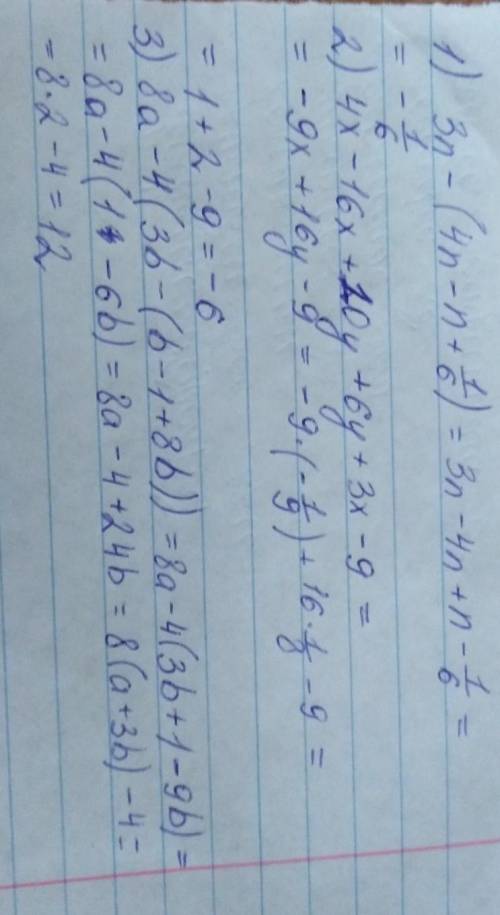 1) 3n - (4n - n + 1/6) = 3n - 4n + n - 1/6 =
= - 1/6
2) 4x - 16x + 10y + 6y + 3x - 9 =
= - 9x + 16y - 9 = - 9 · (- 1/9) + 16 · 1/8 - 9 =
= 1 + 2 - 9 = - 6
3) 8a - 4(3b - (b - 1 + 8b)) = 8a - 4(3b + 1 - 9b) =
= 8a - 4(1 - 6b) = 8a - 4 + 24b = 8(a + 3b) - 4 =
= 8 · 2 - 4 = 12